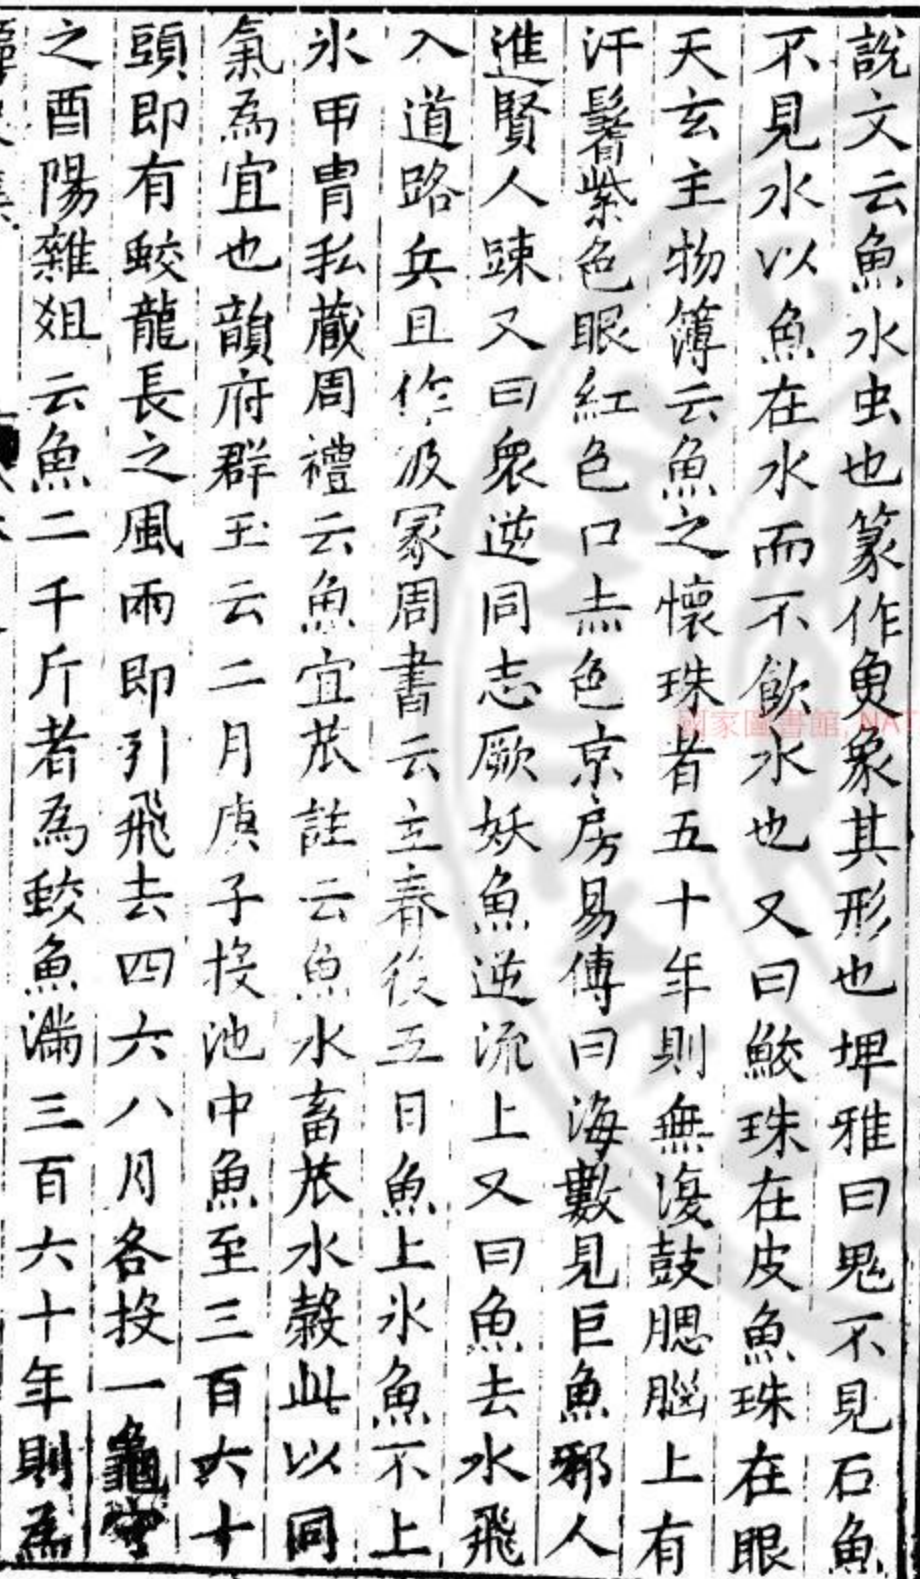 說文云魚水虫也篆作𤋳象其形也埤雅曰鬼不見石魚
不見水以魚在水而不飲水也又曰鮫珠在皮魚珠在眼
天玄主物簿云魚之懷珠者五十年則無復鼓腮腦上有
汗鬐紫色眼紅色口赤色京房易傳曰海數見巨魚邪人
進賢人踈又曰衆逆同志厥妖魚逆流上又曰魚去水飛
入道路兵且作汲冡周書云立春後五日魚上氷魚不上
氷甲胄私蔵周禮云魚宜苽註云魚水畜苽水穀此以同
氣為宜也韻府群玉云二月庚子投池中魚至三百六十
頭即有蛟龍長之風雨即引飛去四六八月各投一龜守
之酉陽雜俎云魚二千斤者為蛟魚滿三百六十年則為
國家圖書館, NAT